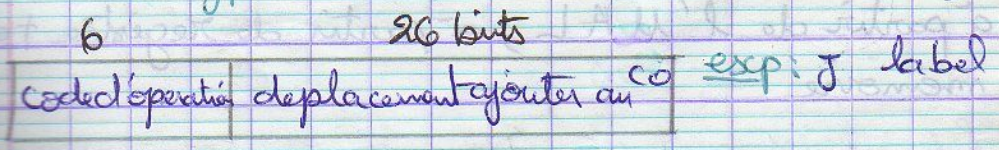 6 26 bits
code d'opération déplacement ajouter au CO exp: J label